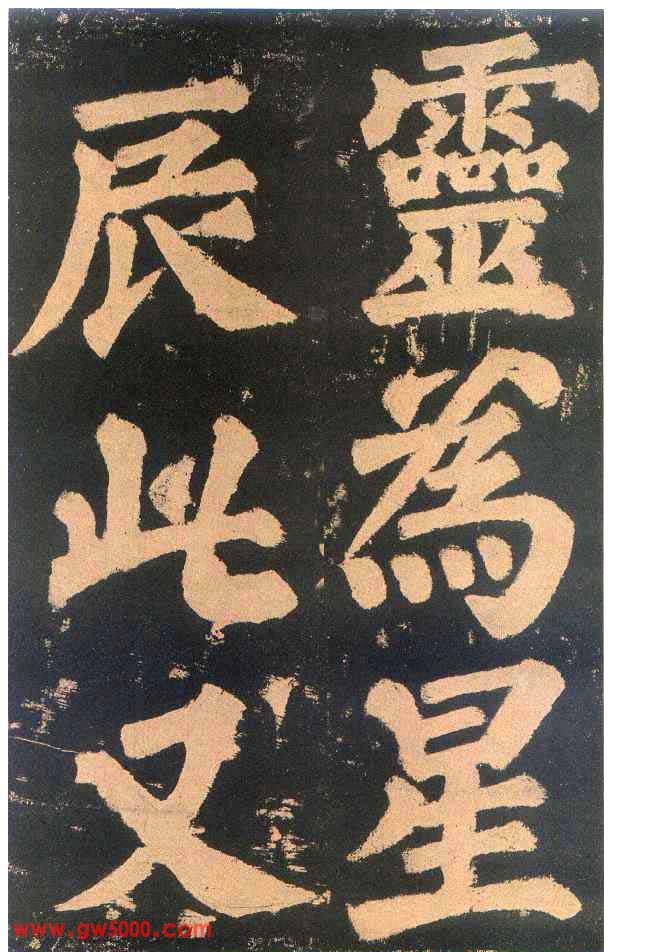 靈為星
辰此又
www.gw5000.com